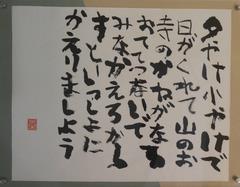 夕やけ小やけで
日がくれて山のお
寺のかねがなる
おててつないで
みなかえろから
すといっしょに
かえりましょう